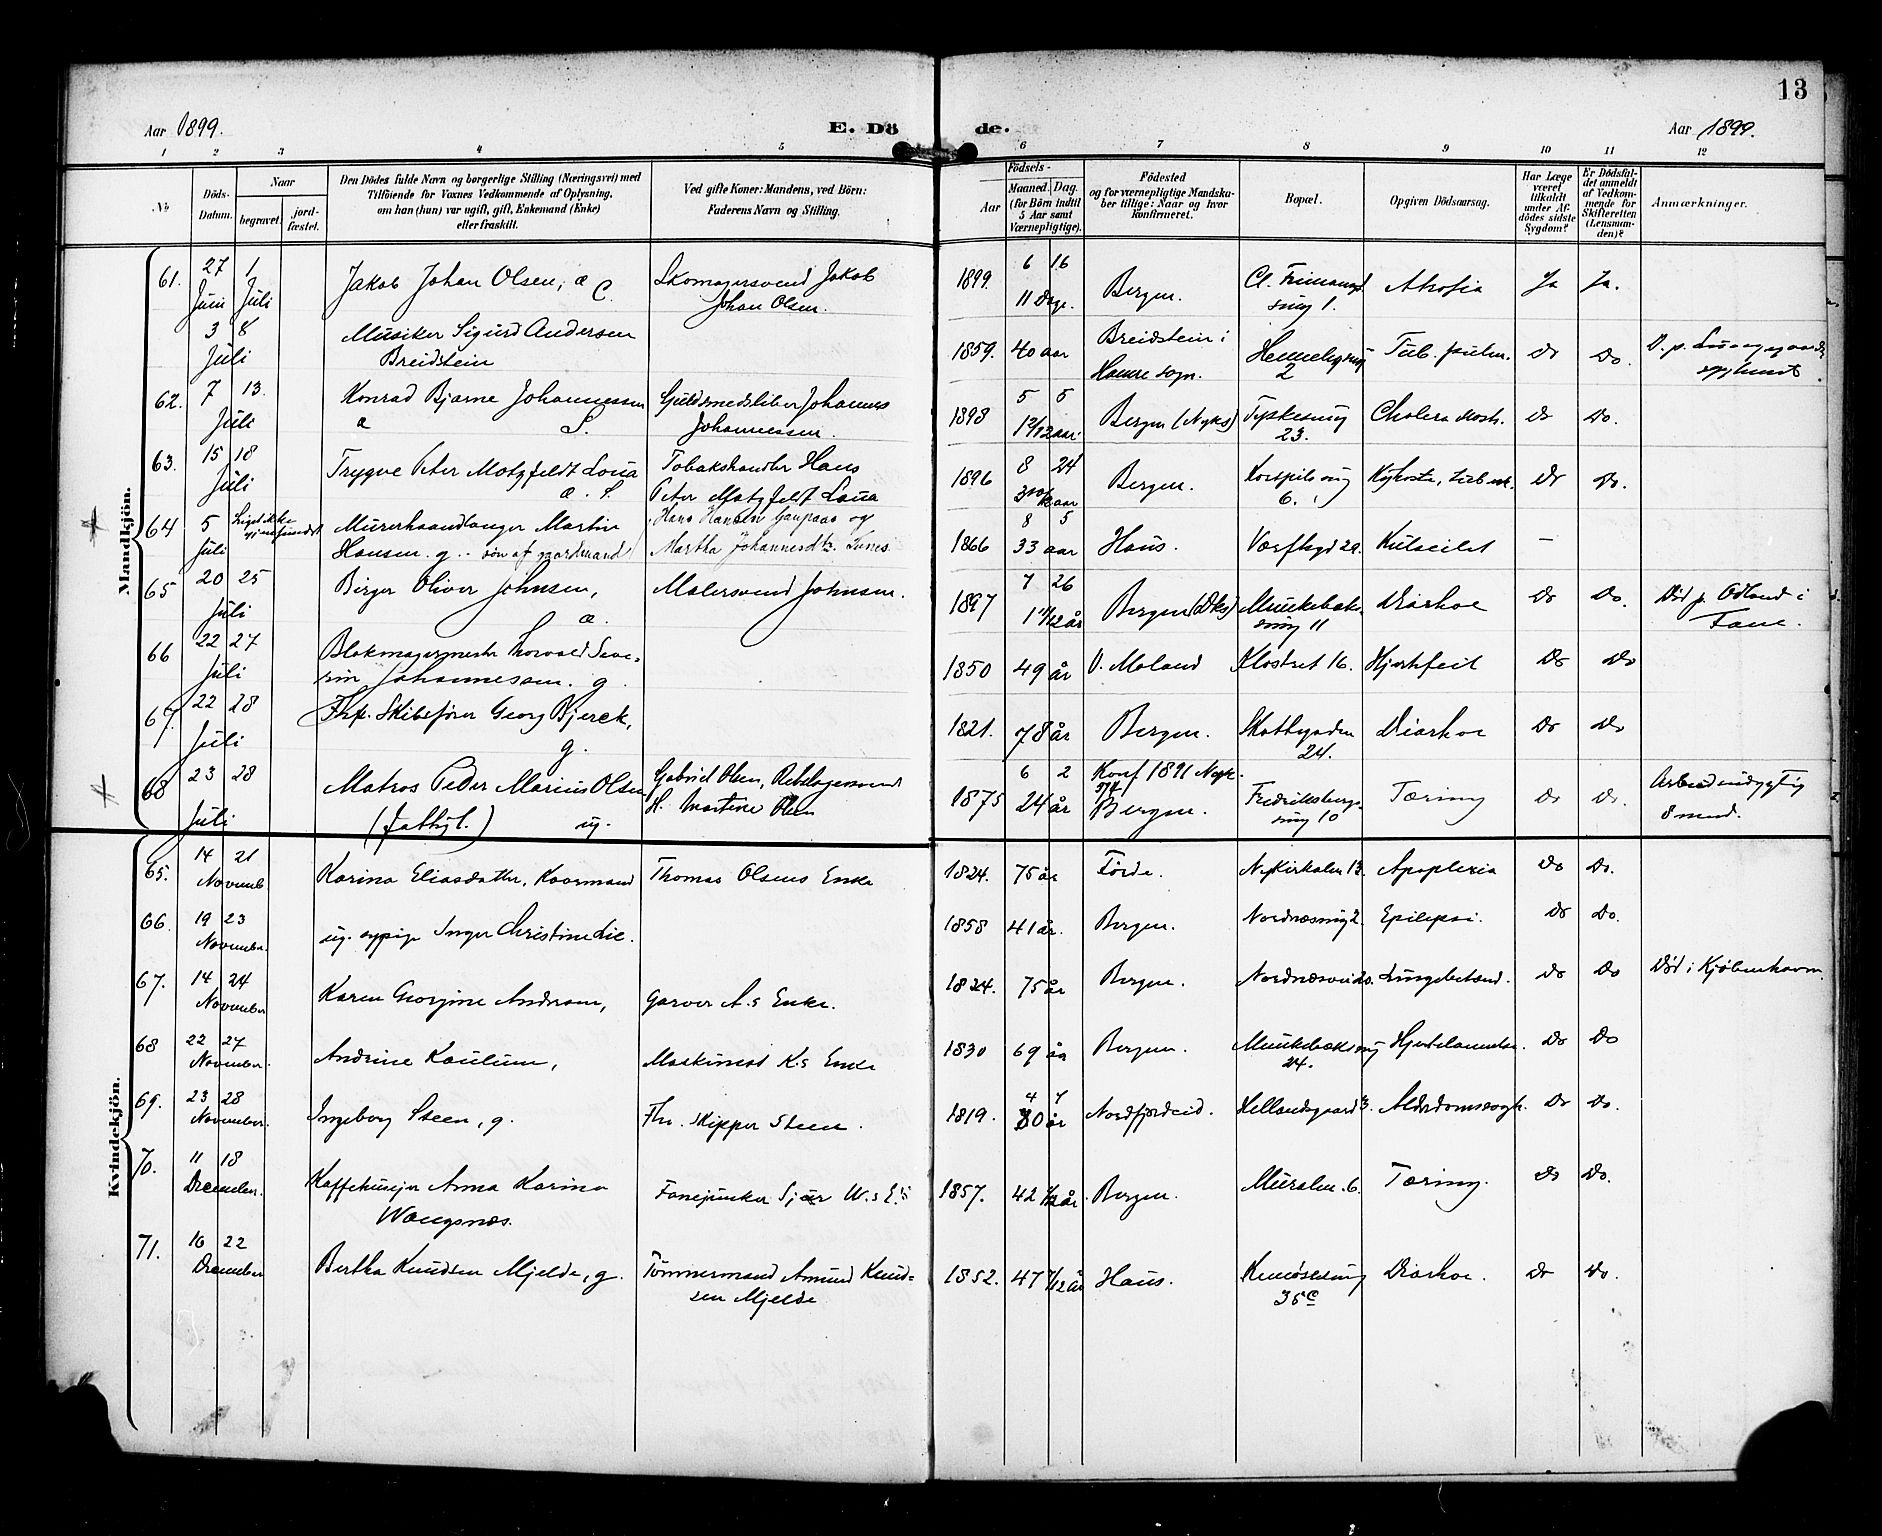 13
Aar 1899.
E. Dö de.
Aar 1899.
1 2 3 4 5 6 7 8 9 10 11 12
№
Döds-Datum.
Naar
begravet.
jord-fæstet.
Den Dödes fulde Navn og borgerlige Stilling (Næringsvei) med
Tilföiende for Voxnes Vedkommende af Oplysning,
om han (hun) var ugift, gift, Enkemand (Enke)
eller fraskilt.
Ved gifte Koner: Mandens, ved Börn:
Faderens Navn og Stilling.
Födsels-
Aar
Maaned. Dag.
(for Börn indtil
5 Aar samt
Værnepligtige).
Födested
og for værnepligtige Mandska-
ber tillige: Naar og hvor
konfirmeret.
Bopæl.
Opgiven Dödsaarsag.
Har Læge
været
tilkaldt
under Af-
dödes sidste
Sygdom?
Er Dödsfal-
det anmeldt
af Vedkom-
mende for
Skifteretten
(Lensman-
den)?
Anmærkninger.
Mandkjön.
61. 27 Juni 1 Juli Jakob Johan Olsen, æ C. Skomagersvend Jakob Johan Olsen. 1899. 6 16 11 Dage. Bergen. Cl. smug 1. Atrofia Ja Ja.
3 8 Juli Musiker Sigurd Andersen Breidstein 1859. 40 aar Breidstein i Hamre sogn. 2 Tub. pulm. Do Do. D. p. Lungegaards
62. 7 13. Juli Konrad Bjarne Johannessen æ S. Johannes Johannessen. 1898 5 5 1 2/12 aar. Bergen (Nyks) Tyskesmug 23. Cholera nostr. Do Do.
63. 15 18 Juli Trygve Peter Motzfeldt Loua æ. S. Tobakshandler Hans Peter Motzfeldt Loua 1896 8 24 aar Bergen. 6. Do Do.
64 5 Juli Liget ikke gjenfundet Murerhaandlanger Martin Hansen g. - søn af gaardmand Hans Hansen Gaupaas og Martha Johannesdtr. 1866 8 5 33 aar Haus. Kulseilet —
65 20 25 Juli Birger Oliver Johnsen, æ. Malersvend Johnsen. 1897 7 26 1 11/12 år Bergen (Dks) Munkebæks smug 11 Diarhoe Do Do. Død p. Odland i Fane.
66 22 27 Juli Blokmagermester Thorvald Seve-rin Johannessen. g. 1850 49 år V. Moland Klostret 16. Hjertefeil Do Do
67. 22 28 Juli Fhv. Skibsfører Georg Bjerck, g. 1821. 78 år Bergen. Skottegaden 24. Diarhoe Do Do
68 23 28 Juli Matros Peder Marius Olsen (fattigl.) ug. Gabriel Olsen, Rebslagersvend H. Martine Olsen 1875 6 2 24 år Konf 1891 Nyk. Bergen. Fredriksbergs smug 10 Tæring Do Do. Arbeidsudygtig 8 mnd.
Kvindekjön.
65. 14 21 Novemb. Karina Eliasdatter, Kaarmand Thomas Olsens Enke 1824. 75 år Førde. Nykirkealm 13. Apoplexia Do Do.
66. 19 23 November. ug. sypige Inger Christine Lie. 1858 41 år. Bergen. Nordnæsmug 2. Epilepsi. Do Do.
67. 14 24 November Karen Georgine Andersen, Garver A.s Enke. 1824. 75 år Bergen. Lungebetænd. Do Do Død i Kjøbenhavn
68 22 27 November. Andrine Kaulum, Maskinist K.s Enke 1830 69 år Bergen. Munkebæksmug 24. Hjertelammelse. Do Do
69. 23 28 November. Ingeborg Steen, g. Fhv. Skipper Steen. 1819. 4 7 80 år Nordfjordeid. Hellandsgaard 3. Do Do.
70. 11 18 December. Anna Karina Wangsnæs. Fanejunker Sjur W.s E. 1857. 42 år. Bergen. Muralm. 6. Tæring. Do Do.
71. 16 22 December Bertha Knudsen Mjelde, g. Tømmermand Amund Knud-sen Mjelde 1852. 47 7/12 år Haus. Knøsesmug 35c Diarhoe. Do Do.